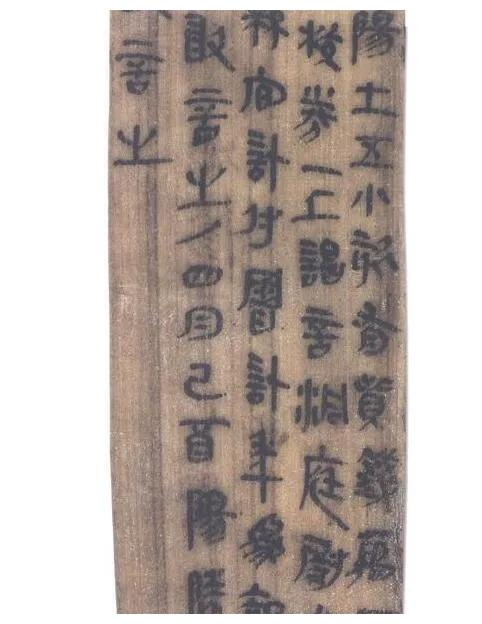 陽士五小欬有貲錢萬
校券一上謁言洞庭尉
官計付署計年為報
敢言之/四月己酉陽陵
言之